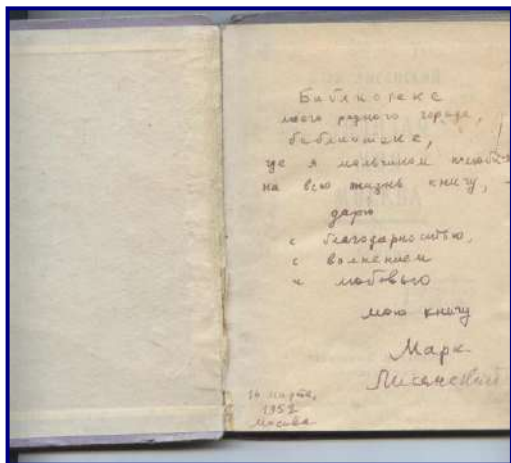 Библиотеке
моего родного города,
библиотеке,
где я мальчиком полюбил
на всю жизнь книгу, -
дарю
с благодарностью,
с волнением
и любовью
мою книгу
Марк
Лисянский
14 марта,
Москва